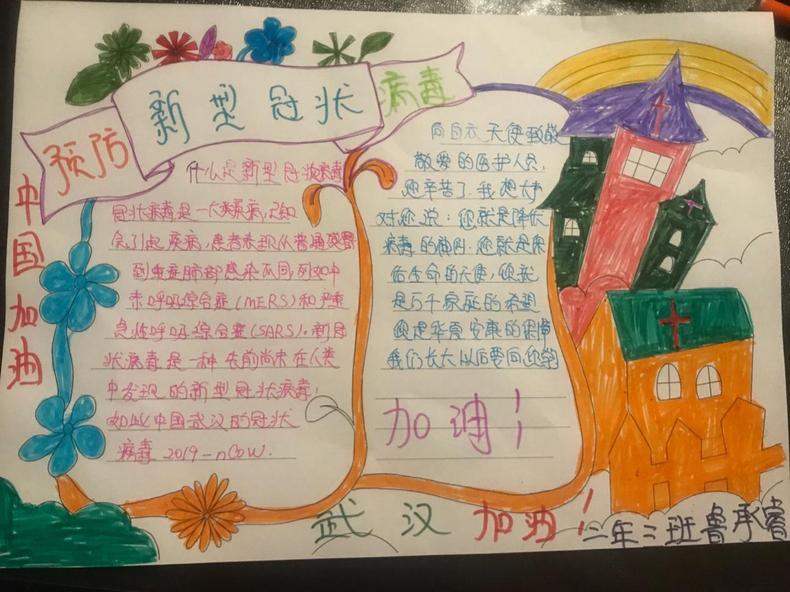 预防新型冠状病毒
中国加油
什么是新型冠状病毒
冠状病毒是一大类病,已知
会引起疾病,患者表现从普通感冒
到重症肺部感染不同,例如中
东呼吸综合症(MERS)和严重
急性呼吸综合症(SARS)。新冠
状病毒是一种先前尚未在人类
中发现的新型冠状病毒,
如此中国武汉的冠状
病毒2019-nCOV.
向白衣天使致敬
敬爱的医护人员,
您辛苦了,我想大声
对您说:您就是降伏
病毒的,您就是
佑生命的天使,您就
是万千家庭的希望
您是华夏安康的保障
我们长大以后要向您学
加油!
武汉加油!
二年二班鲁承睿